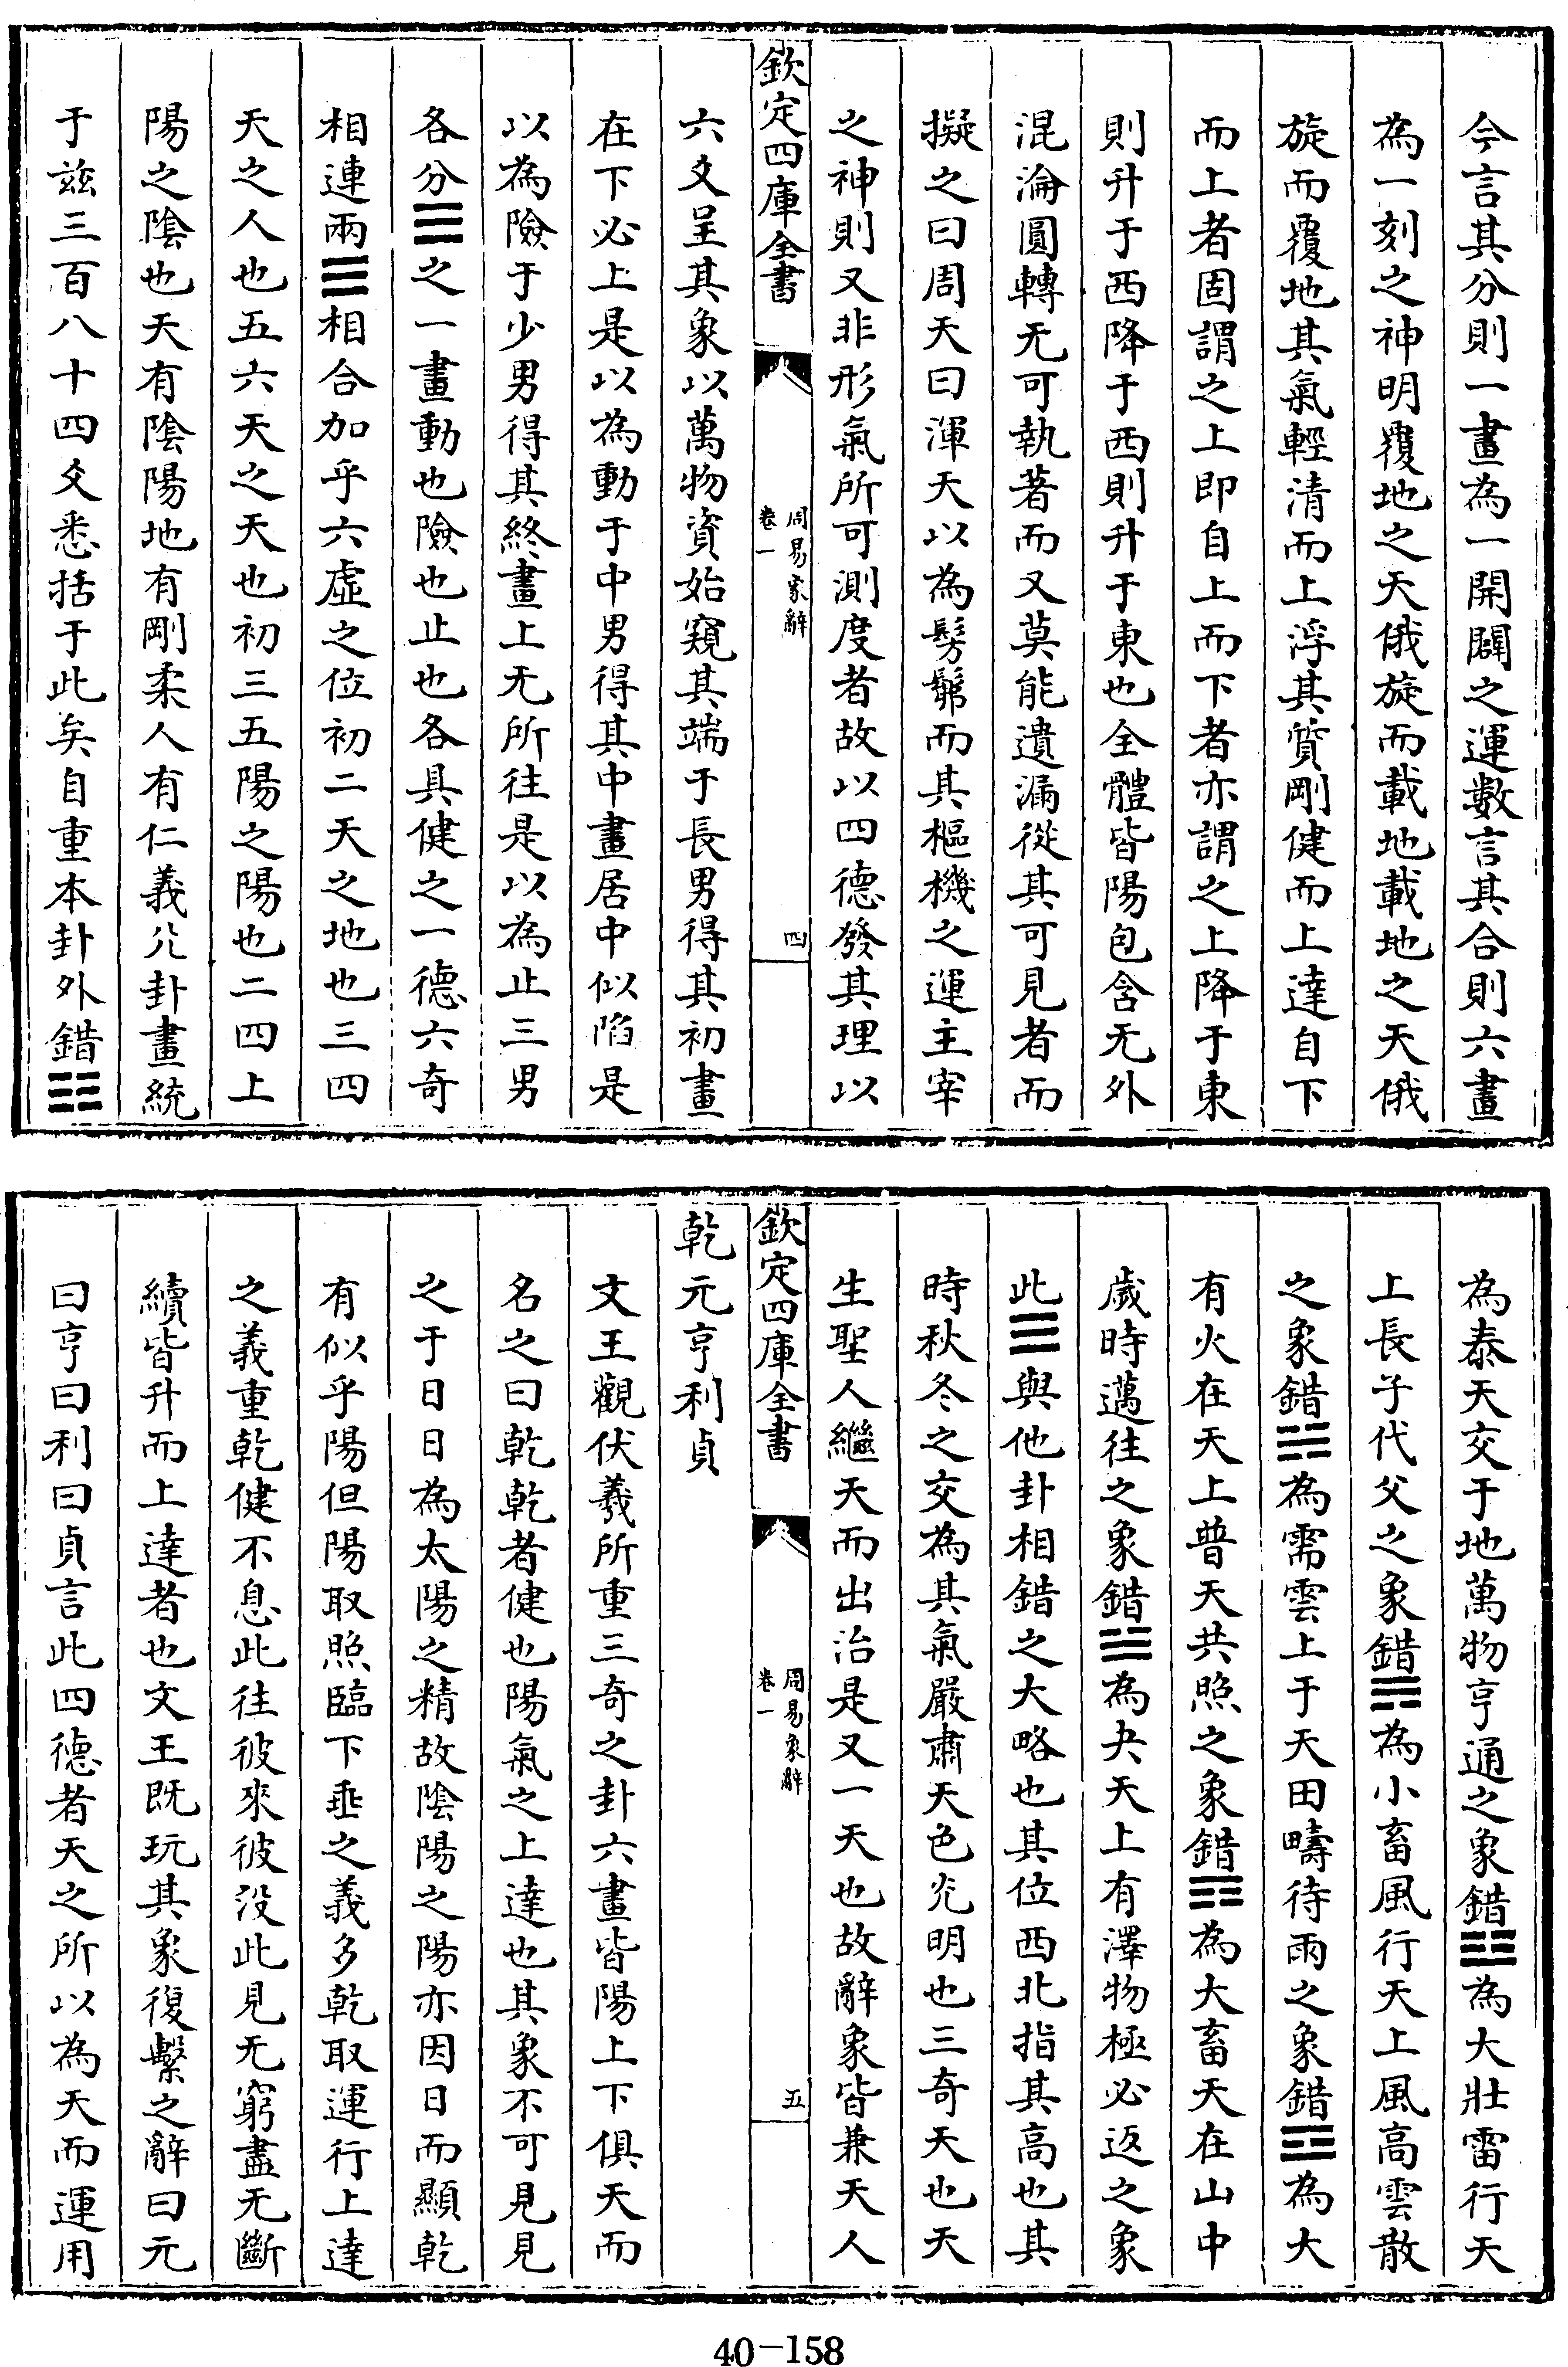 今言其分則一畫為一開闢之運數言其合則六畫
為一刻之神明覆地之天俄旋而載地載地之天俄
旋而覆地其氣輕清而上浮其質剛健而上達自下
而上者固謂之上即自上而下者亦謂之上降于東
則升于西降于西則升于東也全體皆陽包含无外
混淪圓轉无可執著而又莫能遺漏從其可見者而
擬之曰周天曰渾天以為髣髴而其樞機之運主宰
之神則又非形氣所可測度者故以四德發其理以
欽定四庫全書
周易象辭
卷一
四
六爻呈其象以萬物資始窺其端于長男得其初畫
在下必上是以為動于中男得其中畫居中似陷是
以為險于少男得其終畫上无所往是以為止三男
各分☰之一畫動也險也止也各具健之一德六奇
相連兩☰相合加乎六虛之位初二天之地也三四
天之人也五六天之天也初三五陽之陽也二四上
陽之陰也天有陰陽地有剛柔人有仁義凢卦畫統
于兹三百八十四爻悉括于此矣自重本卦外錯☷
為泰天交于地萬物亨通之象錯☳為大壯雷行天
上長子代父之象錯☴為小畜風行天上風高雲散
之象錯☵為需雲上于天田疇待雨之象錯☲為大
有火在天上普天共照之象錯☶為大畜天在山中
歲時邁往之象錯☱為夬天上有澤物極必返之象
此☰與他卦相錯之大略也其位西北指其高也其
時秋冬之交為其氣嚴肅天色光明也三奇天也天
生聖人繼天而出治是又一天也故辭象皆兼天人
欽定四庫全書
周易象辭
卷一
五
乾元亨利貞
文王觀伏羲所重三奇之卦六畫皆陽上下俱天而
名之曰乾乾者健也陽氣之上達也其象不可見見
之于日日為太陽之精故陰陽之陽亦因日而顯乾
有似乎陽但陽取照臨下垂之義多乾取運行上達
之義重乾健不息此往彼來彼没此見无窮盡无斷
續皆升而上達者也文王既玩其象復繫之辭曰元
曰亨曰利曰貞言此四德者天之所以為天而運用
40-158